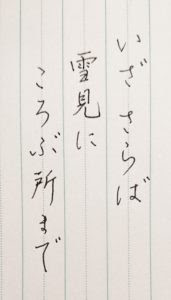 いざさらば
雪見に
ころぶ所まで